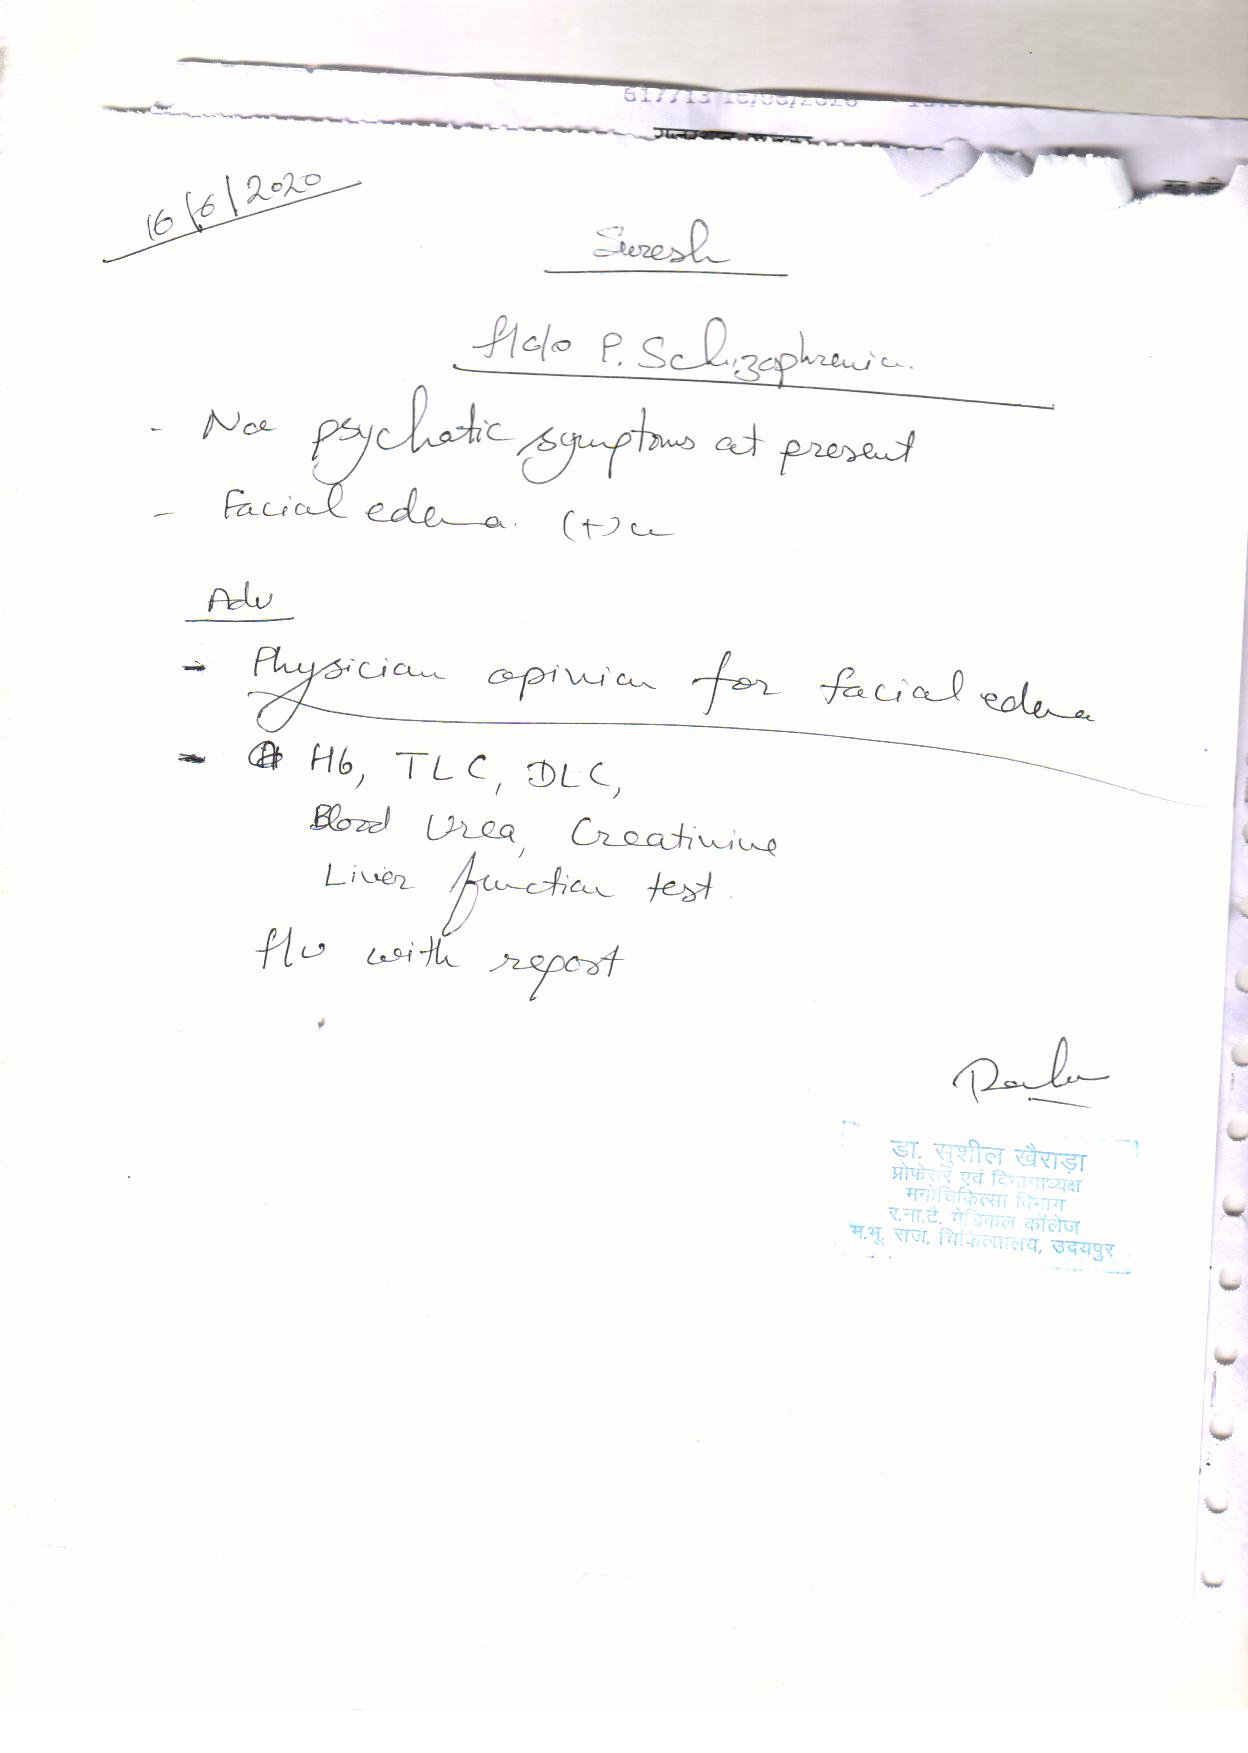 617713 16/06/2020
16/6/2020
Suresh
H/o P. Schizophrenia.
- No psychotic symptoms at present
- Facial edema (+)
Adv
- Physician opinion for facial edema
- Hb, TLC, DLC,
Blood Urea, Creatinine
Liver function test.
f/u with report
डा. सुशील खैराड़ा
प्रोफेसर एवं विभागाध्यक्ष
मनोचिकित्सा विभाग
र.ना.टै. मेडिकल कॉलेज
म.भू. राज. चिकित्सालय, उदयपुर